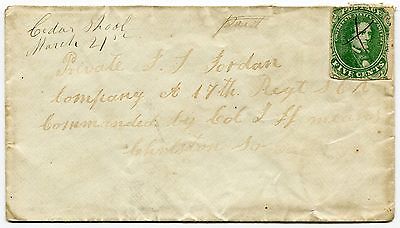 Cedar Shoal
March 21st
Paid
POSTAGE
FIVE CENTS
Private T. J Jordan
Company A 17th Regt S C V
Commanded by Col J H means
Charleston So Ca